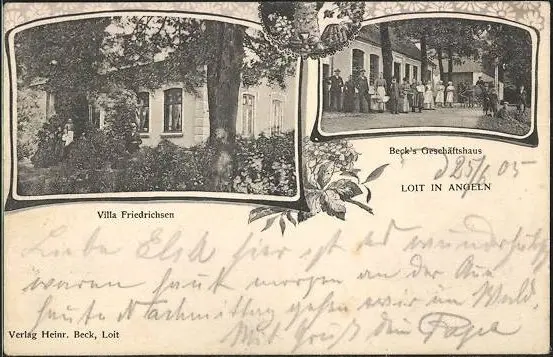 Beck's Geschäftshaus
d 25/6 05
LOIT IN ANGELN
Villa Friedrichsen
Liebe Elsa hier ist es wunderhübsch
waren heute morgen an der Aue
heute Nachmittag gehen wir im Wald.
Mit Gruß dein Papa
Verlag Heinr. Beck, Loit